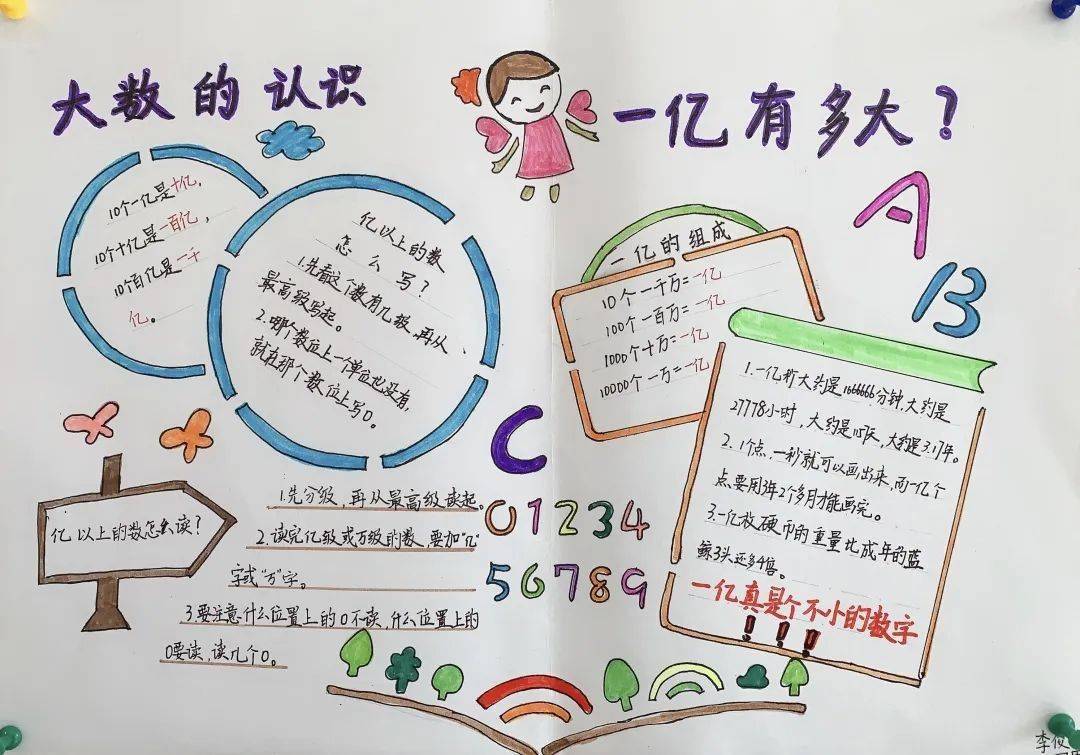 大数的认识
10个一亿是十亿，
10个十亿是一百亿，
10个百亿是一千
亿。
亿以上的数
怎么写？
1.先看这个数有几级，再从
最高级写起。
2.哪个数位上一个单位也没有，
就在那个数位上写0。
亿以上的数怎么读？
1.先分级，再从最高级读起。
2.读完亿级或万级的数，要加“亿”
字或“万”字。
3.要注意什么位置上的0不读，什么位置上的
0要读，读几个0。
一亿有多大？
A
B
C
01234
56789
一亿的组成
10个一千万=一亿
100个一百万=一亿
1000个十万=一亿
10000个一万=一亿
1.一亿秒大约是1666666分钟，大约是
27778小时，大约是1157天，大约是3.17年。
2.1个点，一秒就可以画出来，而一亿个
点要用3年2个多月才能画完。
3.一亿枚硬币的重量比成年的蓝
鲸3头还多4倍。
一亿真是个不小的数字
!!!